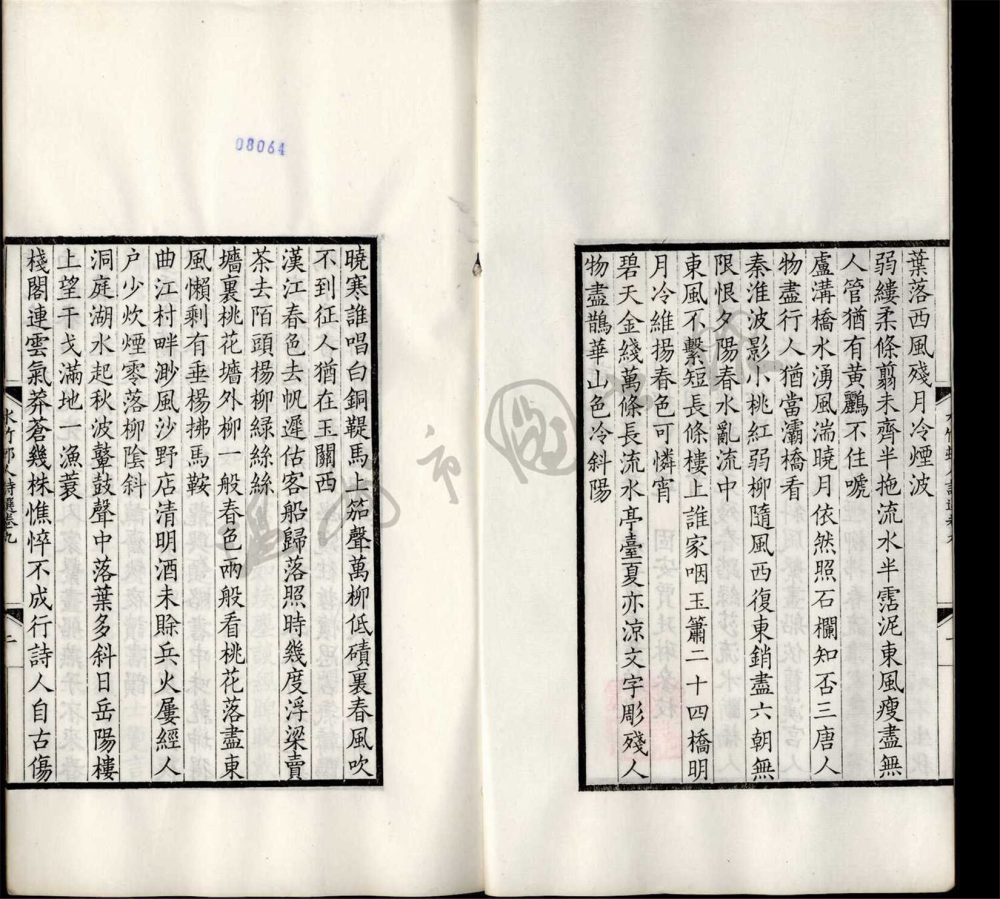 葉落西風殘月冷煙波
弱縷柔條翦未齊半拖流水半霑泥東風瘦盡無
人管猶有黃鸝不住嗁
盧溝橋水湧風湍曉月依然照石欄知否三唐人
物盡行人猶當灞橋看
秦淮波影小桃紅弱柳隨風西復東銷盡六朝無
限恨夕陽春水亂流中
東風不繫短長條樓上誰家咽玉簫二十四橋明
月冷維揚春色可憐宵
碧天金綫萬條長流水亭臺夏亦涼文字彫殘人
物盡鵲華山色冷斜陽
曉寒誰唱白銅鞮馬上笳聲萬柳低磧裏春風吹
不到征人猶在玉關西
漢江春色去帆遲估客船歸落照時幾度浮梁賣
茶去陌頭楊柳綠絲絲
墻裏桃花墻外柳一般春色兩般看桃花落盡東
風懶剩有垂楊拂馬鞍
曲江村畔渺風沙野店清明酒未賒兵火屢經人
户少炊煙零落柳陰斜
洞庭湖水起秋波鼙鼓聲中落葉多斜日岳陽樓
上望干戈滿地一漁蓑
棧閣連雲氣莽蒼幾株憔悴不成行詩人自古傷
水竹邨人詩選卷九
二
08064